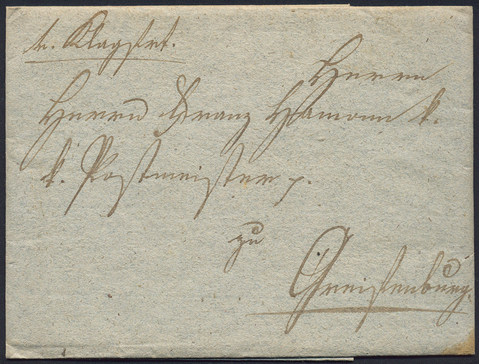 v. Klagfrt.
Herrn
Herrn Franz Hamonn k.
k. Postmeister
zu
Greifenburg